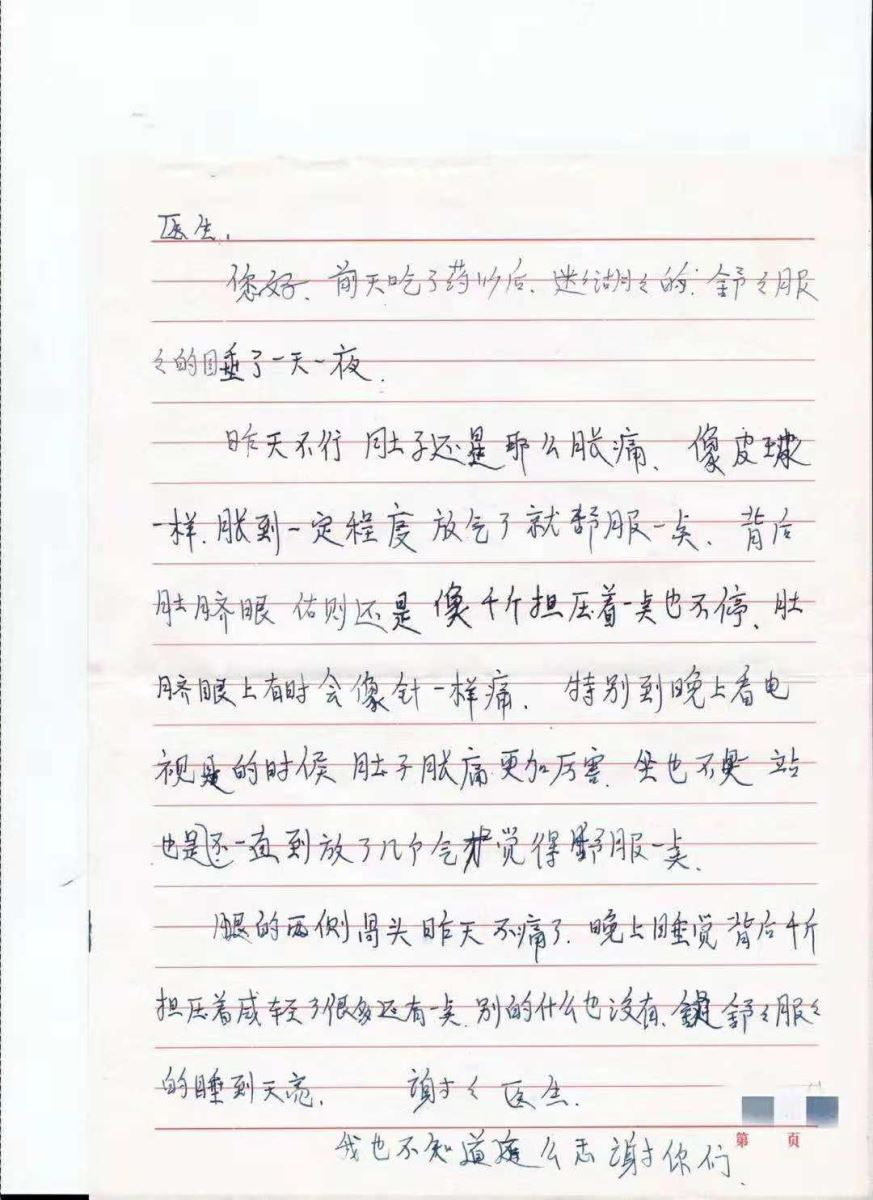 医生,
您好、前天吃了药以后、迷迷糊糊的、舒々服
々的睡了一天一夜.
昨天不行 肚子还是那么胀痛、像皮球
一样.胀到一定程度 放气了就舒服一点、背后
肚脐眼 右则还是像千斤担压着一点也不停、肚
脐眼上有时会像针一样痛. 特别到晚上看电
视的时侯 肚子胀痛更加厉害.坐也不是 站
也是不一直到放了几个气才觉得舒服一点.
腿的两侧骨头 昨天不痛了.晚上睡觉背后千斤
担压着减轻了很多还有一点.别的什么也没有、舒々服々
的睡到天亮. 谢々医生.
我也不知道怎么志谢你们.
第 页